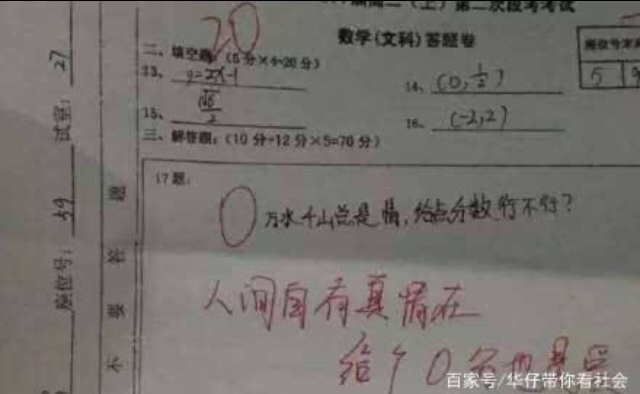 二（上）第二次段考考试
数学(文科)答题卷
20
二、填空题：(5分×4=20分)
13、y=2x-1
14、(0,1/2)
15、√6/2
16、(-2,2)
三、解答题：(10分+12分×5=70分)
座位号末
5
试室：27
座位号：59
不要答题
17题：
0
万水千山总是情,给点分数行不行?
人间自有真情在
给个0分也是爱
百家号/华仔带你看社会